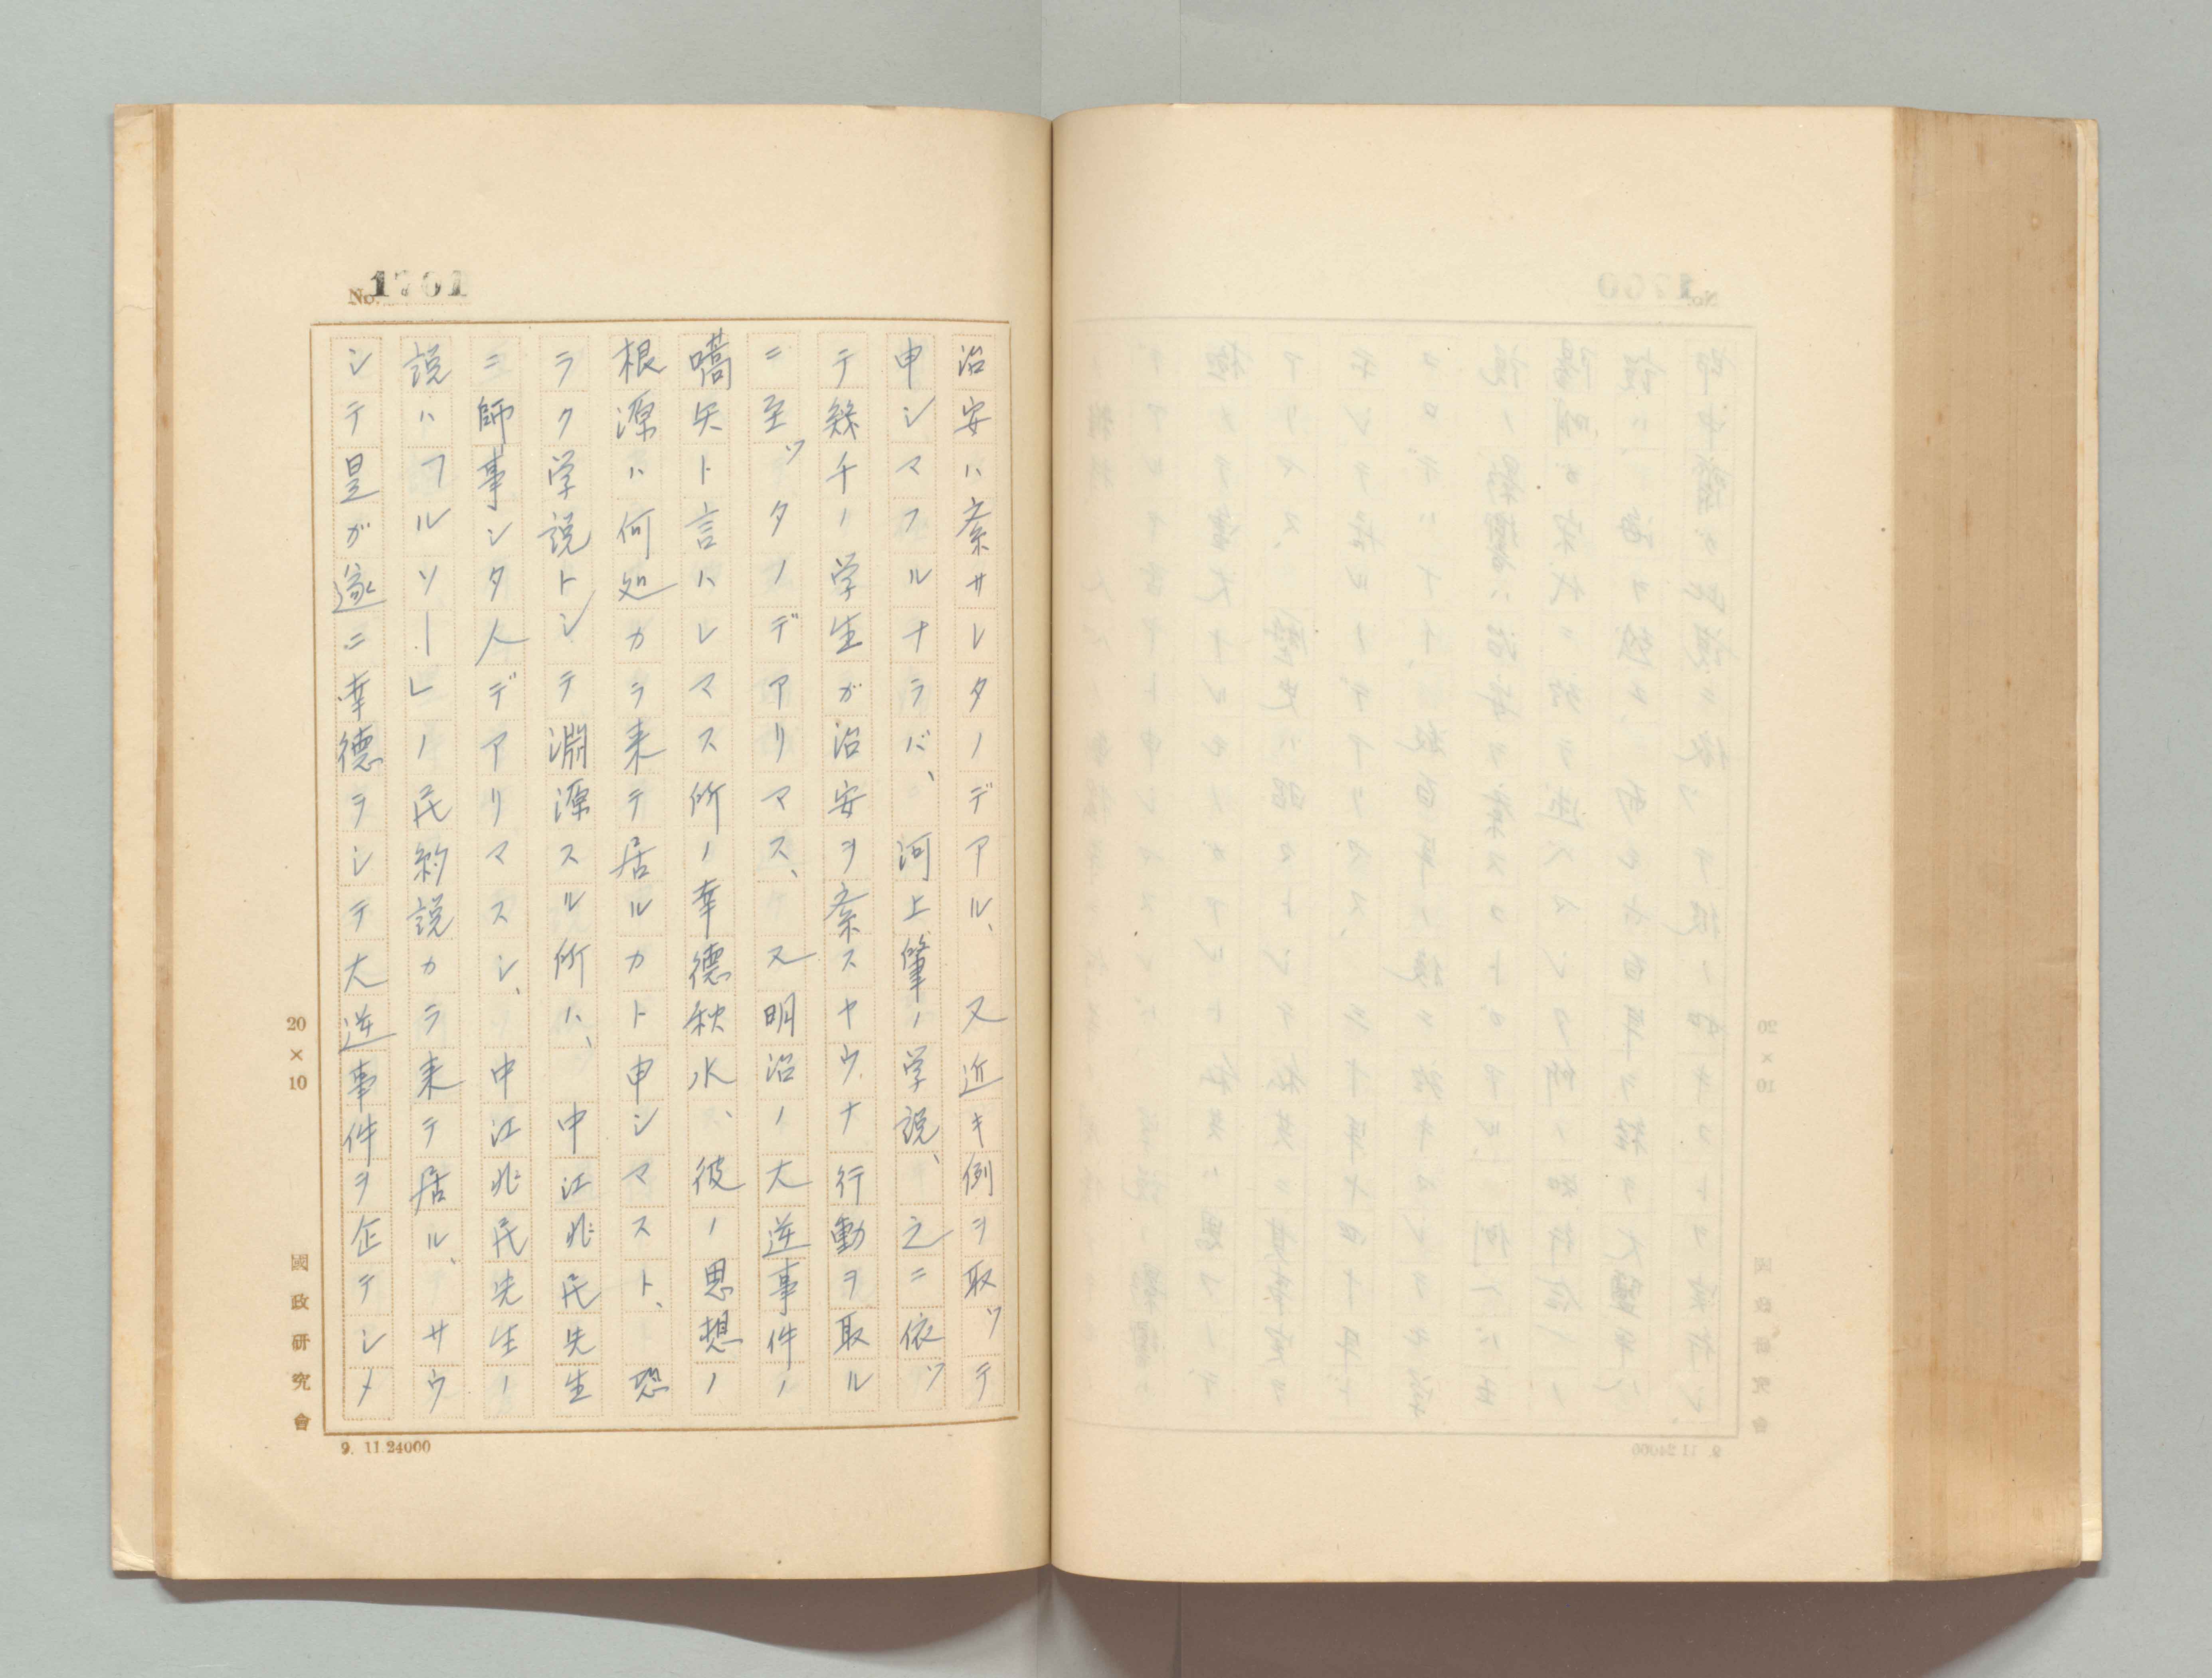 No. 1701
治安ハ紊サレタノデアル、又近キ例ヲ取ッテ
申シマスルナラバ、河上肇ノ学説、之ニ依ッ
テ幾千ノ学生ガ治安ヲ紊スヤウナ行動ヲ取ル
ニ至ッタノデアリマス、又明治ノ大逆事件ノ
嚆矢ト言ハレマス所ノ幸德秋水、彼ノ思想ノ
根源ハ何処カラ来テ居ルカト申シマスト、恐
ラク学説トシテ淵源スル所ハ、中江兆民先生
ニ師事シタ人デアリマスシ、中江兆民先生ノ
説ハ「ルソー」ノ民約説カラ来テ居ル、サウ
シテ是ガ遂ニ幸德ヲシテ大逆事件ヲ企テシメ
20×10
國政研究會
9. 11.24000